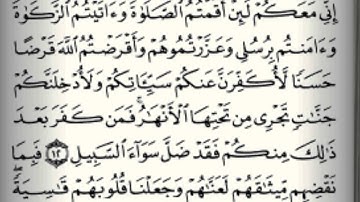 إِنِّي مَعَكُمْ لَئِنْ أَقَمْتُمُ ٱلصَّلَوٰةَ وَءَاتَيْتُمُ ٱلزَّكَوٰةَ
وَءَامَنتُم بِرُسُلِي وَعَزَّرْتُمُوهُمْ وَأَقْرَضْتُمُ ٱللَّهَ قَرْضًا
حَسَنًا لَّأُكَفِّرَنَّ عَنكُمْ سَيِّـَٔاتِكُمْ وَلَأُدْخِلَنَّكُمْ
جَنَّـٰتٍ تَجْرِي مِن تَحْتِهَا ٱلْأَنْهَـٰرُ ۚ فَمَن كَفَرَ بَعْدَ
ذَٰلِكَ مِنكُمْ فَقَدْ ضَلَّ سَوَآءَ ٱلسَّبِيلِ ١٢ فَبِمَا
نَقْضِهِم مِّيثَـٰقَهُمْ لَعَنَّـٰهُمْ وَجَعَلْنَا قُلُوبَهُمْ قَـٰسِيَةً ۖ